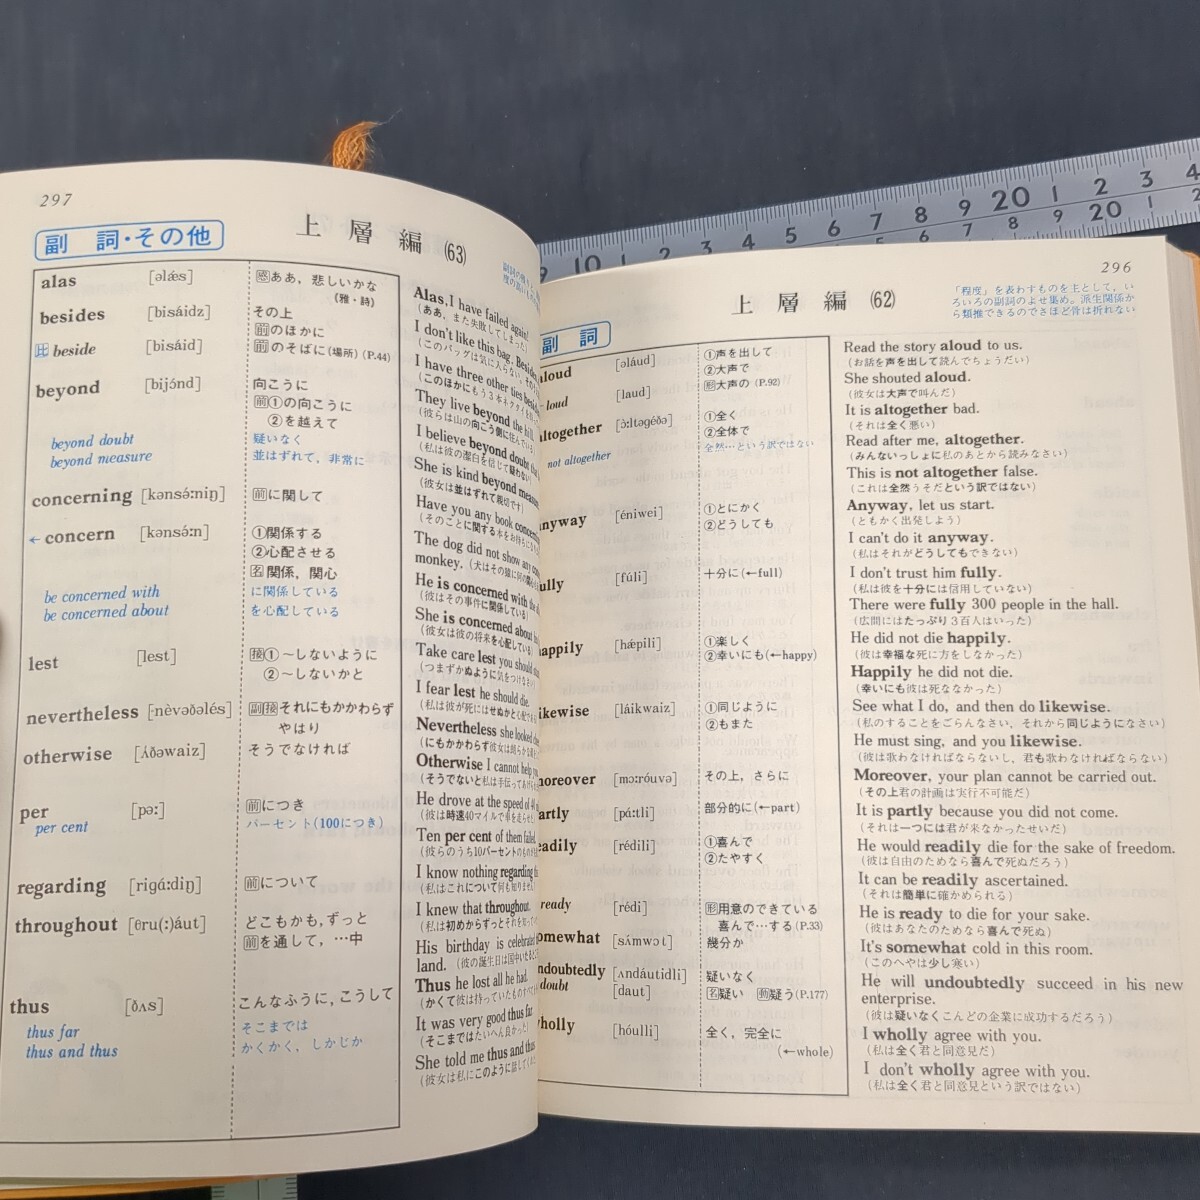 297
副 詞・その他
上 層 編 (63)
alas [əlǽs] 感ああ，悲しいかな
(雅・詩)
besides [bisáidz] その上
前のほかに
比 beside [bisáid] 前のそばに(場所)(P.44)
beyond [bijɔ́nd] 向こうに
前①の向こうに
②を越えて
beyond doubt 疑いなく
beyond measure 並はずれて，非常に
concerning [kənsə́ːniŋ] 前に関して
← concern [kənsə́ːn] ①関係する
②心配させる
名関係，関心
be concerned with に関係している
be concerned about を心配している
lest [lest] 接①〜しないように
②〜しないかと
nevertheless [nèvəðəlés] 副接それにもかかわらず
やはり
otherwise [ʌ́ðəwaiz] そうでなければ
per [pəː] 前につき
per cent パーセント(100につき)
regarding [rigɑ́ːdiŋ] 前について
throughout [θru(ː)áut] どこもかも,ずっと
前を通して，…中
thus [ðʌs] こんなふうに,こうして
thus far そこまでは
thus and thus かくかく，しかじか
Alas, I have failed again!
(ああ，また失敗してしまった)
I don't like this bag. Besides,
I have three other ties besides
(このほかにもう3本ネクタイを
They live beyond the hill.
(彼らは山の向こう側に住んでいる)
I believe beyond doubt
(私は彼の潔白を信じて疑わない)
She is kind beyond measure.
(彼女は並はずれて親切です)
Have you any book
(そのことに関する本をお持ち
The dog did not show any
monkey. (犬はその猿に何の
He is concerned with the
(彼はその事件に関係している)
She is concerned about
(彼女は彼の将来を心配している)
Take care lest you should
(つまずかぬように気をつけなさい)
I fear lest he should die.
(私は彼が死にはせぬかと
Nevertheless she looked
(にもかかわらず彼女は
Otherwise I cannot help
(そうでないと私は手伝って
He drove at the speed of 40
(彼は時速40マイルで車を走らせた)
Ten per cent of them failed.
(彼らのうち10パーセントのものが
I know nothing regarding
(私はこれについて何も知りません)
I knew that throughout.
(私は初めからずっとそれを知っていた)
His birthday is celebrated
land. (彼の誕生日は国中いたる
Thus he lost all he had.
(かくて彼は持っていたものすべてを
It was very good thus far.
(そこまではたいへん良かった)
She told me thus and thus.
(彼女は私にこのように話して
296
上 層 編 (62)
「程度」を表わすものを主として，い
ろいろの副詞のよせ集め。派生関係か
ら類推できるのでさほど骨は折れない
副 詞
aloud [əláud] ①声を出して
②大声で
loud [laud] 形大声の (P.92)
altogether [ɔ̀ːltəgéðə] ①全く
②全体で
not altogether 全然…という訳ではない
anyway [éniwei] ①とにかく
②どうしても
fully [fúli] 十分に(←full)
happily [hǽpili] ①楽しく
②幸いにも(←happy)
likewise [láikwaiz] ①同じように
②もまた
moreover [mɔːróuvə] その上，さらに
partly [pɑ́ːtli] 部分的に(←part)
readily [rédili] ①喜んで
②たやすく
ready [rédi] 形用意のできている
喜んで…する(P.33)
somewhat [sʌ́mwɔt] 幾分か
undoubtedly [ʌndáutidli] 疑いなく
doubt [daut] 名疑い 動疑う(P.177)
wholly [hóulli] 全く，完全に
(←whole)
Read the story aloud to us.
(お話を声を出して読んでちょうだい)
She shouted aloud.
(彼女は大声で叫んだ)
It is altogether bad.
(それは全く悪い)
Read after me, altogether.
(みんないっしょに私のあとから読みなさい)
This is not altogether false.
(これは全然うそだという訳ではない)
Anyway, let us start.
(ともかく出発しよう)
I can't do it anyway.
(私はそれがどうしてもできない)
I don't trust him fully.
(私は彼を十分には信用していない)
There were fully 300 people in the hall.
(広間にはたっぷり3百人はいった)
He did not die happily.
(彼は幸福な死に方をしなかった)
Happily he did not die.
(幸いにも彼は死ななかった)
See what I do, and then do likewise.
(私のすることをごらんなさい，それから同じようになさい)
He must sing, and you likewise.
(彼は歌わなければならないし，君も歌わなければならない)
Moreover, your plan cannot be carried out.
(その上君の計画は実行不可能だ)
It is partly because you did not come.
(それは一つには君が来なかったせいだ)
He would readily die for the sake of freedom.
(彼は自由のためなら喜んで死ぬだろう)
It can be readily ascertained.
(それは簡単に確かめられる)
He is ready to die for your sake.
(彼はあなたのためなら喜んで死ぬ)
It's somewhat cold in this room.
(このへやは少し寒い)
He will undoubtedly succeed in his new
enterprise.
(彼は疑いなくこんどの企業に成功するだろう)
I wholly agree with you.
(私は全く君と同意見だ)
I don't wholly agree with you.
(私は全く君と同意見という訳ではない)
10 1 2 3 4 5 6 7 8 9 20 1 2 3 4